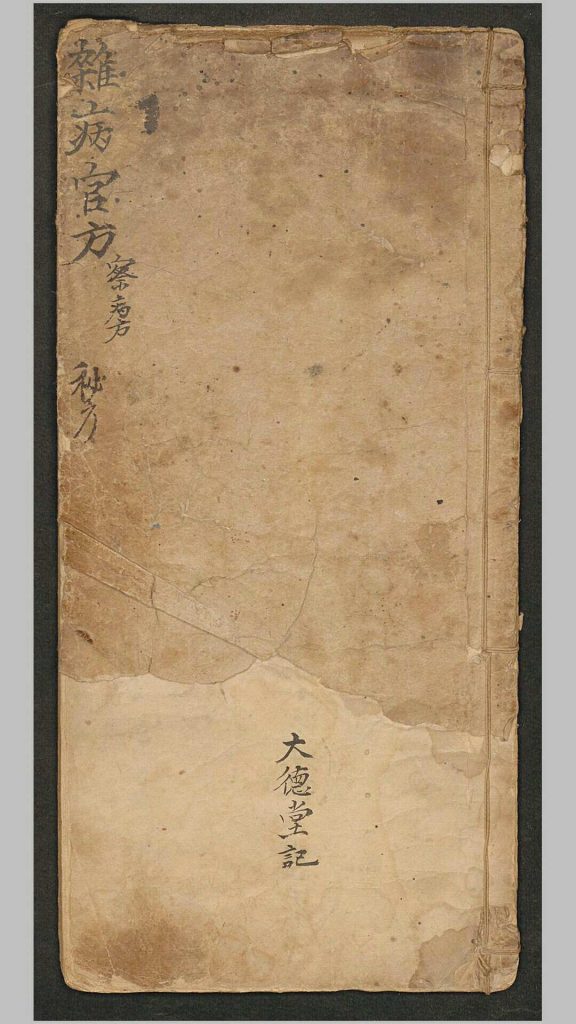 雜病官方
察病方
秘方
大德堂記